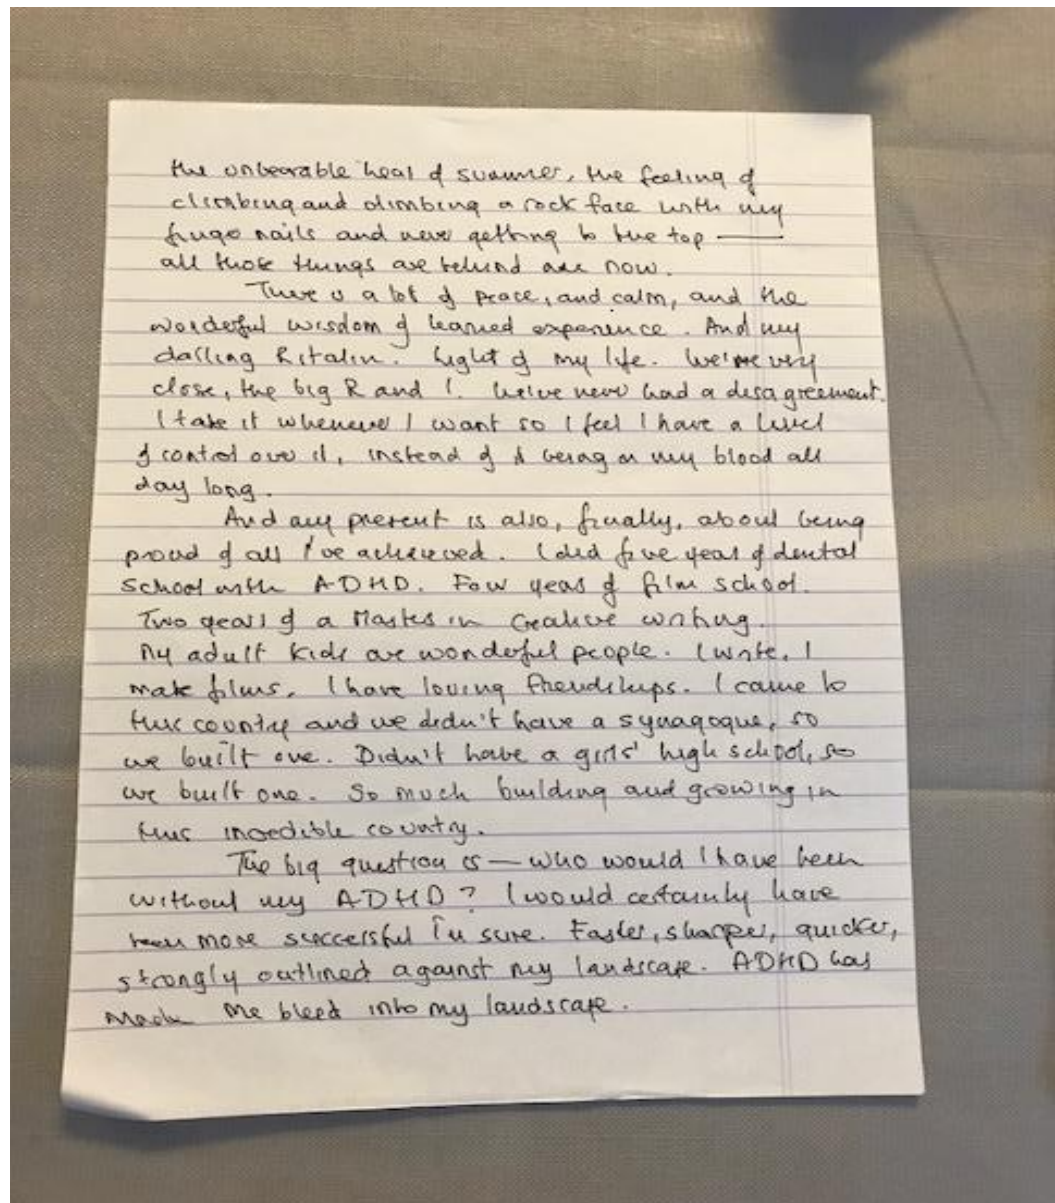 the unbearable heat of summer, the feeling of
climbing and climbing a rock face with my
finge nails and never getting to the top —
all those things are behind me now.
There is a lot of peace, and calm, and the
wonderful wisdom of learned experience. And my
darling Ritalin. Light of my life. We're very
close, the big R and I. We've never had a disagreement.
I take it whenever I want so I feel I have a level
of control over it, instead of it being in my blood all
day long.
And my present is also, finally, about being
proud of all I've achieved. I did five years of dental
school with ADHD. Four years of film school.
Two years of a Masters in Creative writing.
My adult kids are wonderful people. I write. I
make films. I have loving friendships. I came to
this country and we didn't have a synagogue, so
we built one. Didn't have a girls' high school, so
we built one. So much building and growing in
this incredible country.
The big question is — who would I have been
without my ADHD? I would certainly have
been more successful I'm sure. Faster, sharper, quicker,
strongly outlined against my landscape. ADHD has
made me bleed into my landscape.